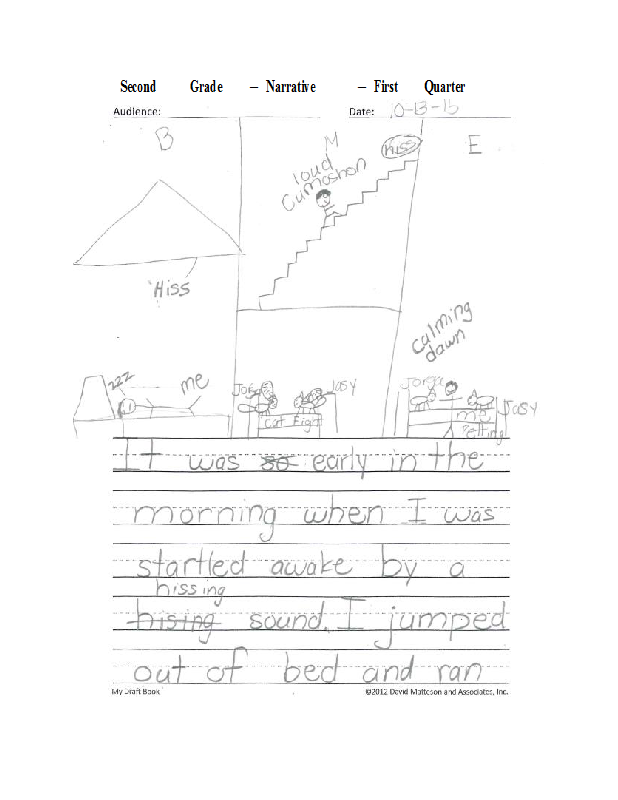 Second Grade – Narrative – First Quarter
Audience:
Date: 10-13-15
B
M
hiss
E
loud
Cumoshon
Hiss
calming
down
zzz
me
Jorga
Jasy
Cat Fight
Jorga
Jasy
me
Petting
It was so early in the
morning when I was
startled awake by a
hissing
hising sound. I jumped
out of bed and ran
My Draft Book
©2012 David Matteson and Associates, Inc.